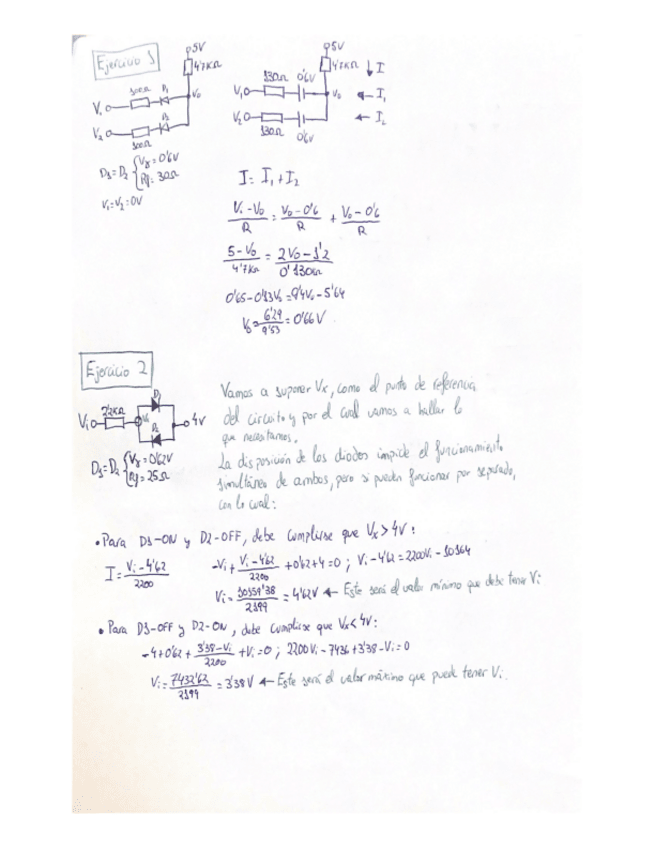 Ejercicio 1
5V
4'7KΩ
V₁ 100Ω D₁ V₀
V₂ 100Ω D₂
D₁=D₂ { Vγ=0'6V
Rf=30Ω
V₁=V₂=0V
5V
4'7KΩ ↓ I
V₁ 130Ω 0'6V V₀ ← I₁
V₂ 130Ω 0'6V ← I₂
I = I₁ + I₂
Vi-V₀/R = V₀-0'6/R + V₀-0'6/R
5-V₀/4'7KΩ = 2V₀-1'2/0'130KΩ
0'65-0'13V₀=9'4V₀-5'64
V₀=6'29/9'53=0'66V
Ejercicio 2
Vi 2'2KΩ Vx D₁ D₂ 4V
D₁=D₂ { Vγ=0'62V
Rf=25Ω
Vamos a suponer Vx, como el punto de referencia
del circuito y por el cual vamos a hallar lo
que necesitamos.
La disposición de los diodos impide el funcionamiento
simultáneo de ambos, pero si pueden funcionar por separado,
con lo cual:
• Para D1-ON y D2-OFF, debe cumplirse que Vx>4V:
I=Vi-4'62/2200 -Vi+Vi-4'62/2200+0'62+4=0; Vi-4'62=2200Vi-10164
Vi=10159'38/2199=4'62V ← Este será el valor mínimo que debe tener Vi
• Para D1-OFF y D2-ON, debe cumplirse que Vx<4V:
-4+0'62+3'38-Vi/2200+Vi=0; 2200Vi-7436+3'38-Vi=0
Vi=7432'62/2199=3'38V ← Este será el valor máximo que puede tener Vi.